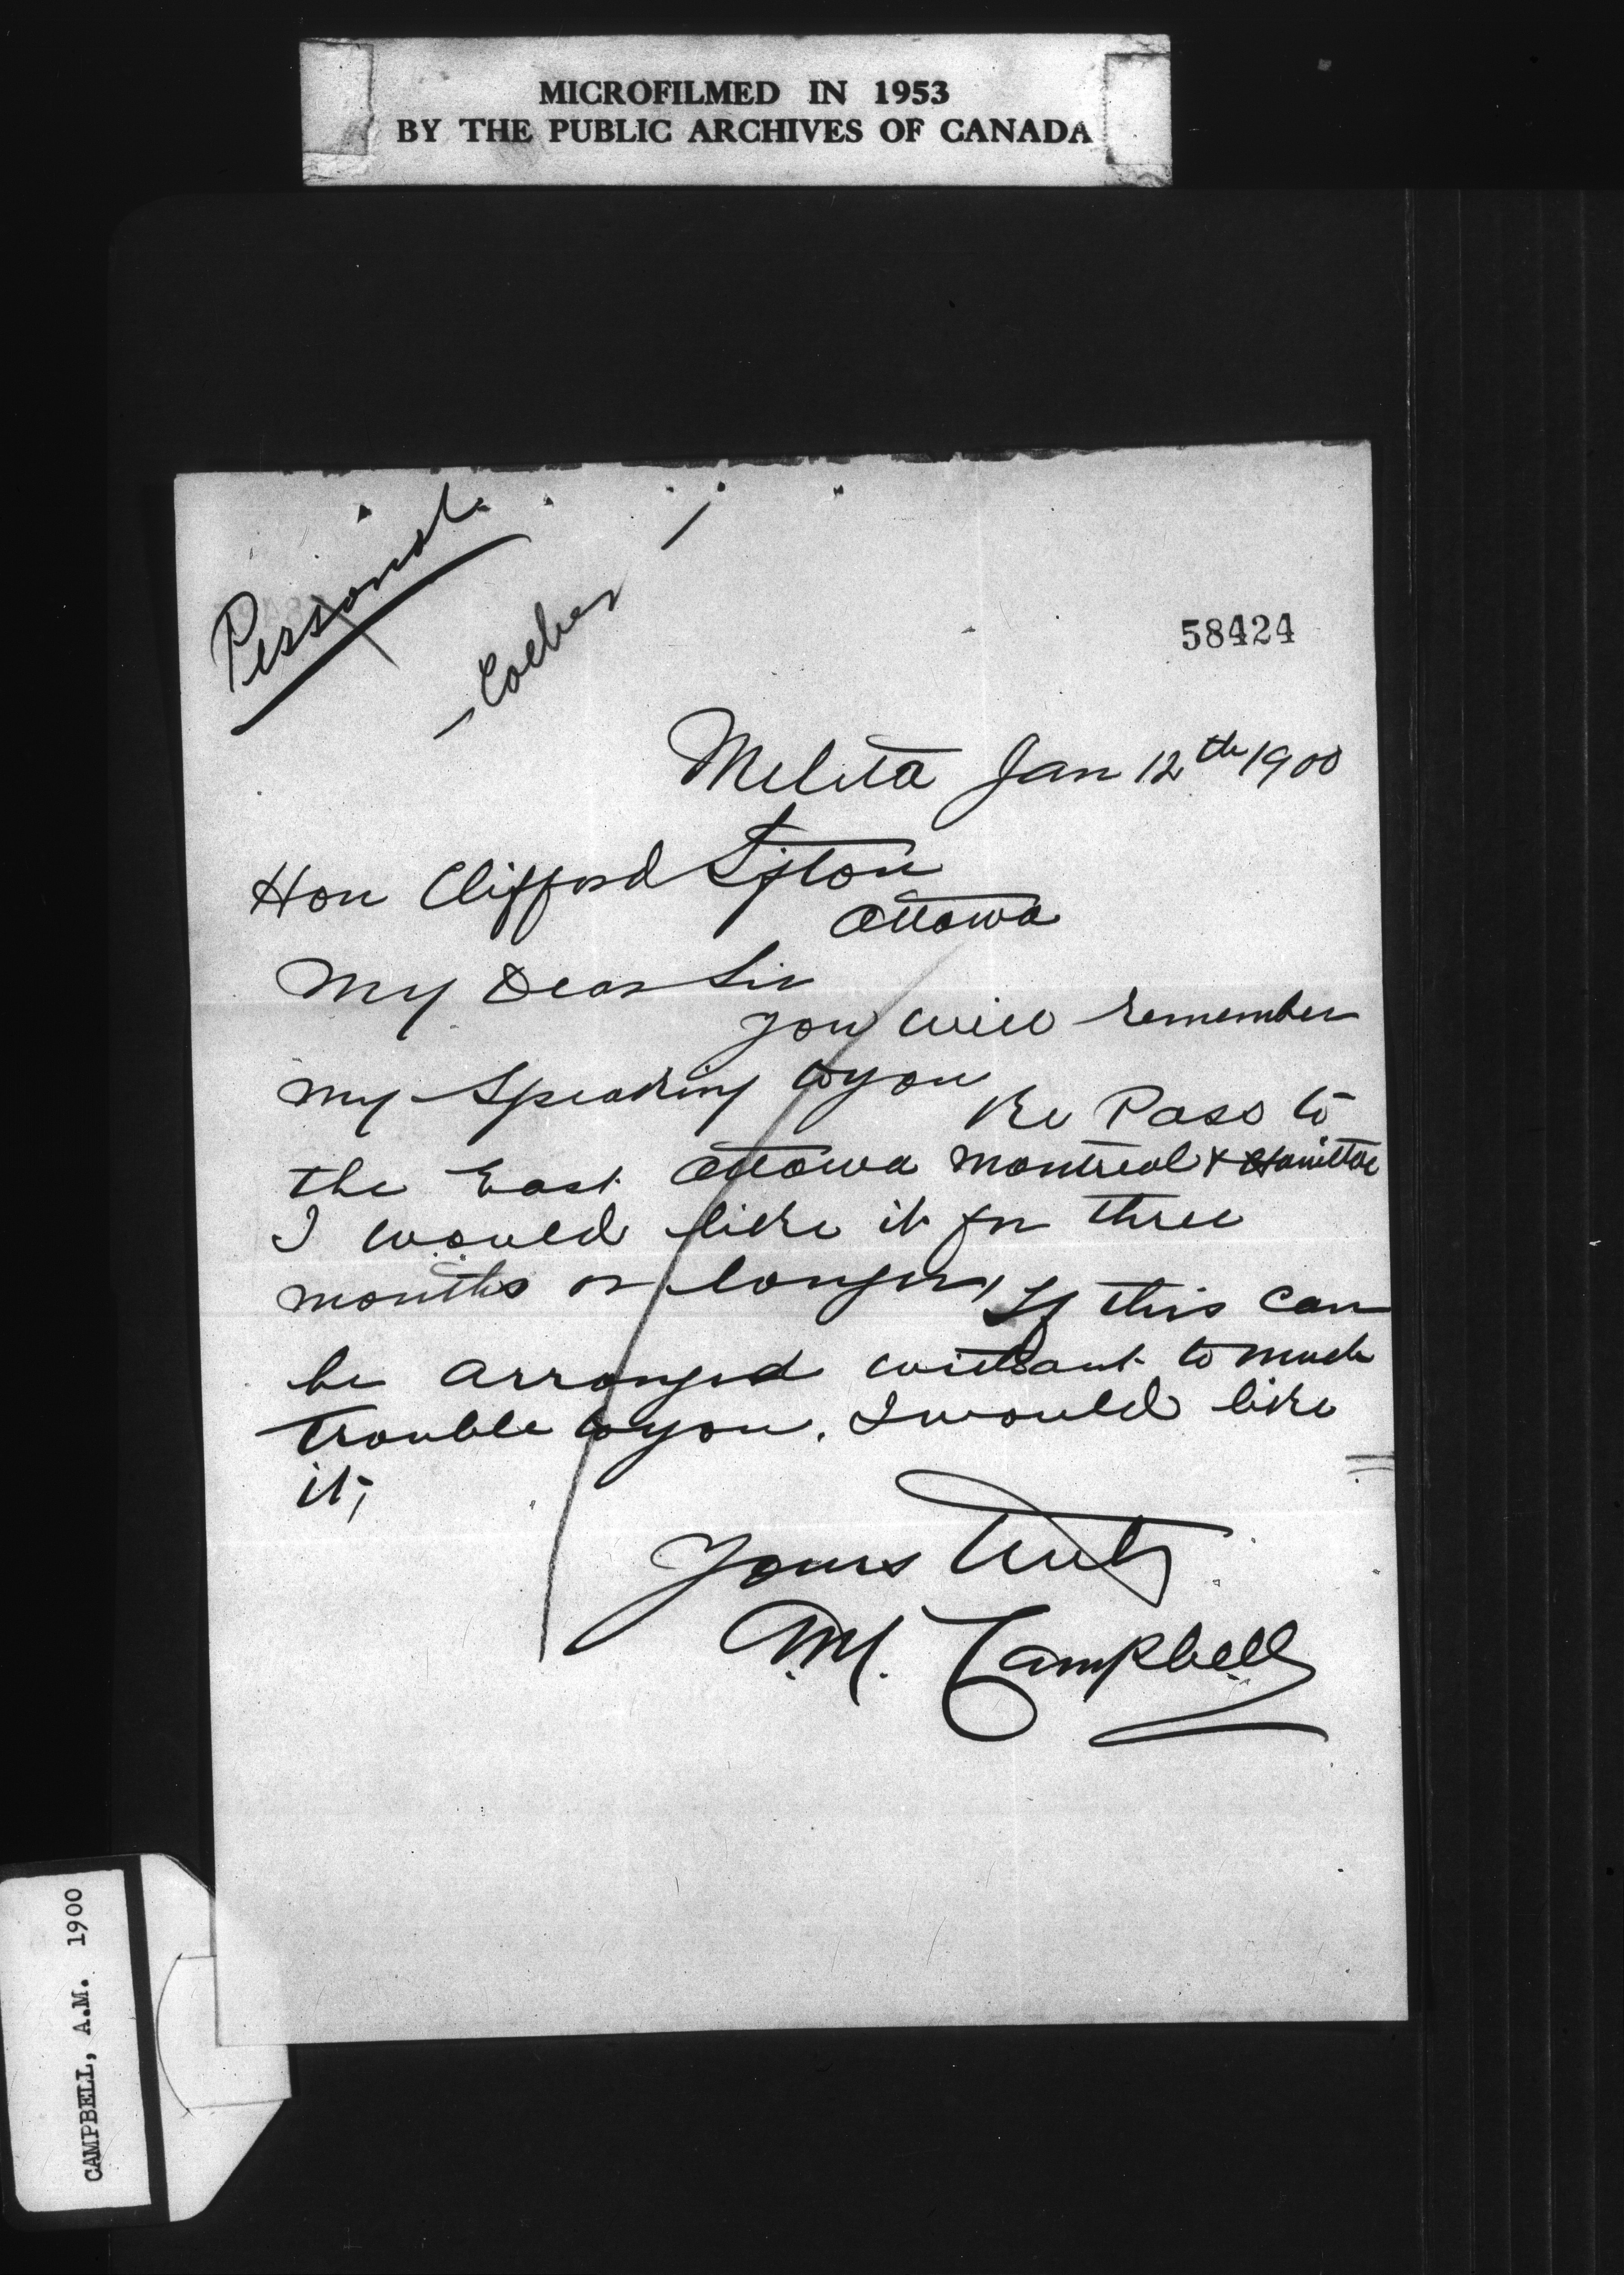 MICROFILMED IN 1953
BY THE PUBLIC ARCHIVES OF CANADA
Personal.
58424
Melita Jan 12th 1900
Hon Clifford Sifton
Ottawa
My Dear Sir
you will remember
my Speaking to you
Re Pass to
the East Ottawa Montreal & Hamilton
I would like it for three
months or longer, If this can
be arranged without to much
trouble to you. I would like
it;
Yours Truly
A.M. Campbell
CAMPBELL, A.M. 1900